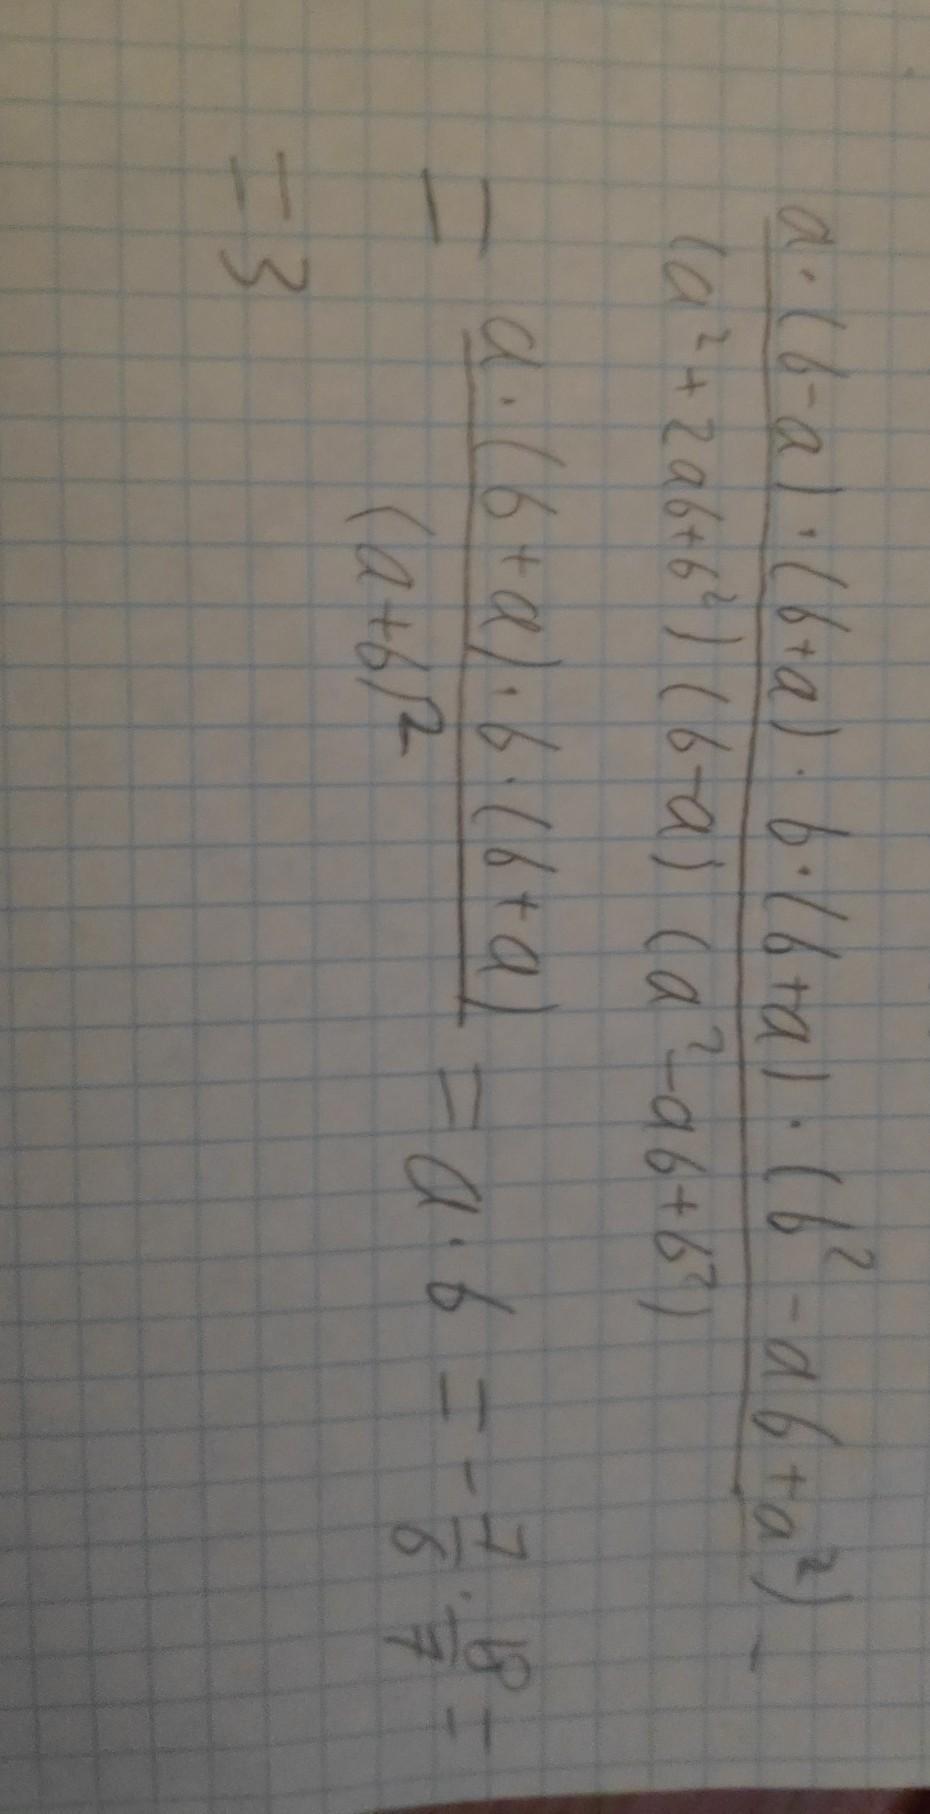 a·(b-a)·(b+a)·b·(b+a)·(b²-ab+a²) -
(a²+2ab+b²)(b-a)(a²-ab+b²)
= a·(b+a)·b·(b+a) = a·b = - 7/6 · 18/7 =
(a+b)²
= 3